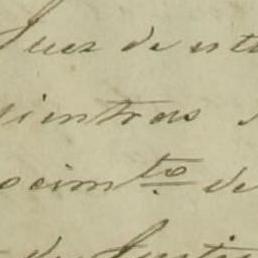 Juez de est
ientras
ocim^to de
de Justi